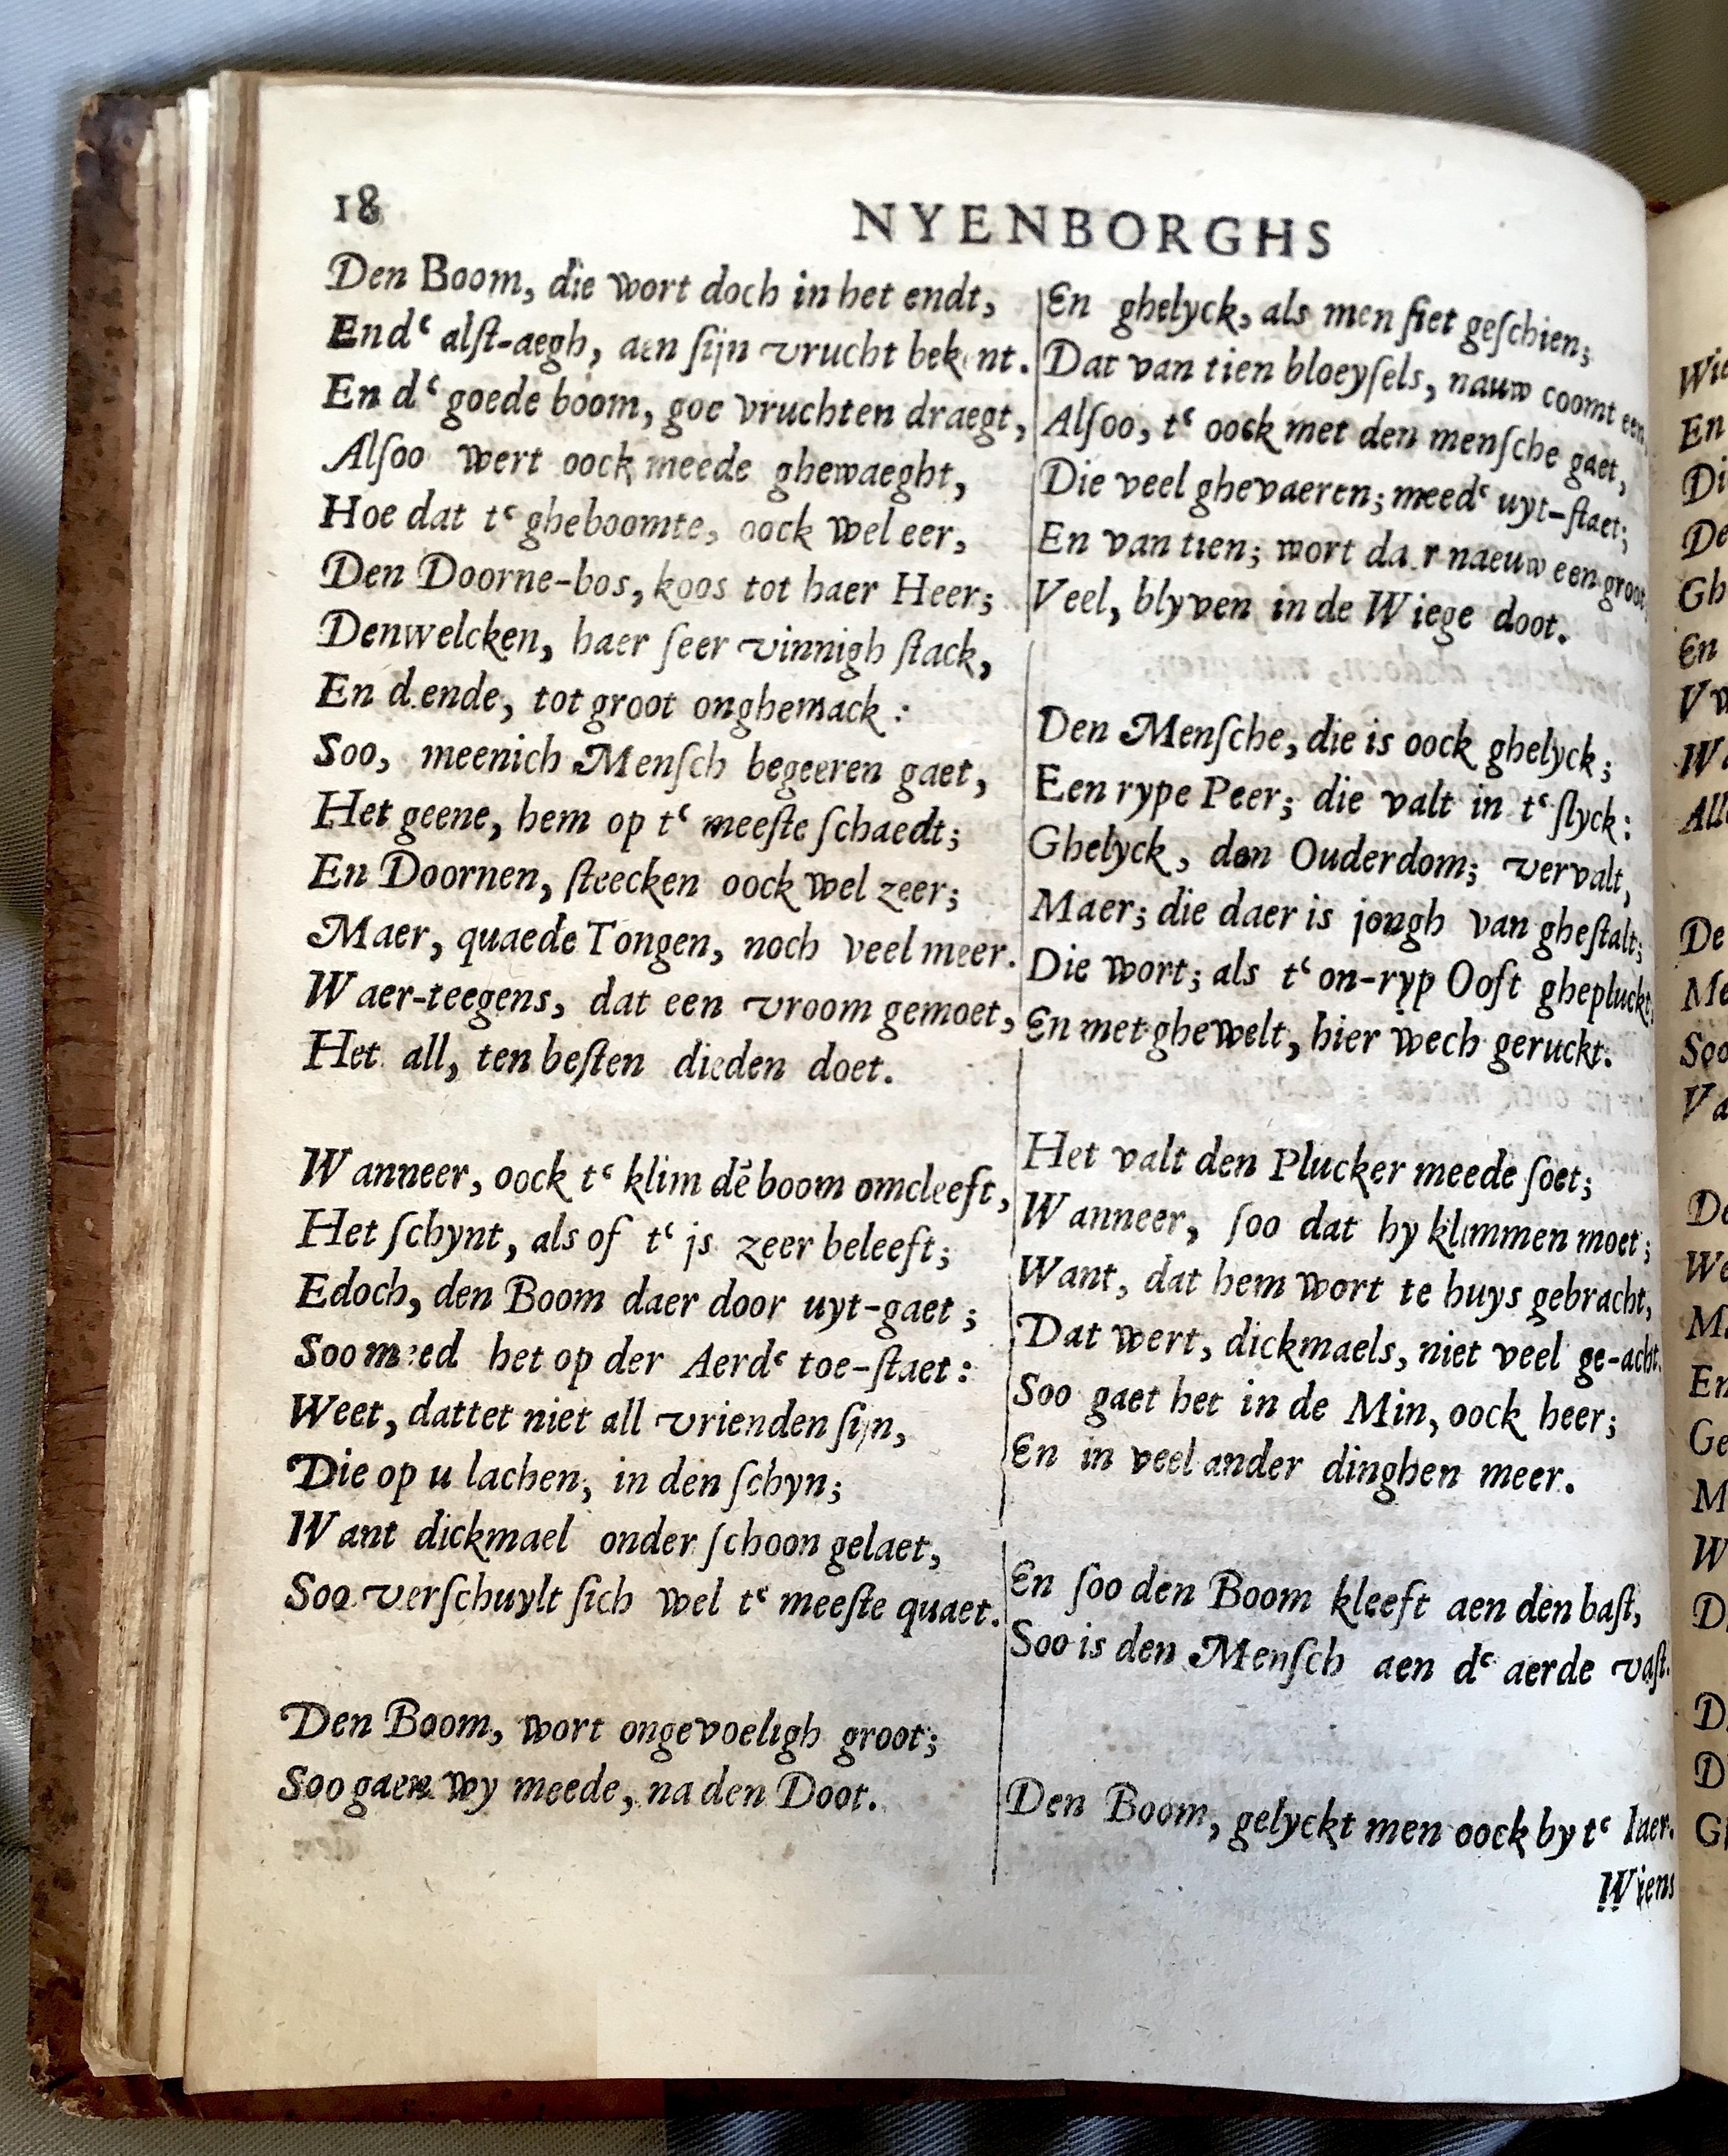 18
NYENBORGHS
Den Boom, die wort doch in het endt,
End‘ alſt-aegh, aen ſijn vrucht bekent.
En d‘ goede boom, goe vruchten draegt,
Alſoo wert oock meede ghewaeght,
Hoe dat t‘ gheboomte, oock wel eer,
Den Doorne-bos, koos tot haer Heer;
Denwelcken, haer ſeer vinnigh ſtack,
En d.ende, tot groot onghemack:
Soo, meenich Menſch begeeren gaet,
Het geene, hem op t‘ meeſte ſchaedt;
En Doornen, ſteecken oock wel zeer;
Maer, quaede Tongen, noch veel meer.
Waer-teegens, dat een vroom gemoet,
Het all, ten beſten dieden doet.
Wanneer, oock t‘ klim dē boom omcleeft,
Het ſchynt, als of t‘ js zeer beleeft;
Edoch, den Boom daer door uyt-gaet;
Soo meed het op der Aerd‘ toe-ſtaet:
Weet, dattet niet all vrienden ſijn,
Die op u lachen, in den ſchyn;
Want dickmael onder ſchoon gelaet,
Soo verſchuylt ſich wel t‘ meeſte quaet.
Den Boom, wort ongevoeligh groot;
Soo gaen wy meede, na den Doot.
En ghelyck, als men ſiet geſchien;
Dat van tien bloeyſels, nauw coomt een,
Alſoo, t‘ oock met den menſche gaet,
Die veel ghevaeren; meed‘ uyt-ſtaet;
En van tien; wort da.r naeuw een groot
Veel, blyven in de Wiege doot.
Den Menſche, die is oock ghelyck;
Een rype Peer; die valt in t‘ ſlyck:
Ghelyck, den Ouderdom; vervalt,
Maer; die daer is jongh van gheſtalt;
Die wort; als t‘ on-ryp Ooſt ghepluckt,
En met ghewelt, hier wech geruckt.
Het valt den Plucker meede ſoet;
Wanneer, ſoo dat hy klimmen moet;
Want, dat hem wort te huys gebracht,
Dat wert, dickmaels, niet veel ge-acht.
Soo gaet het in de Min, oock heer;
En in veel ander dinghen meer.
En ſoo den Boom kleeft aen den baſt,
Soo is den Menſch aen d‘ aerde vaſt.
Den Boom, gelyckt men oock by t‘ Iaer.
Wiens